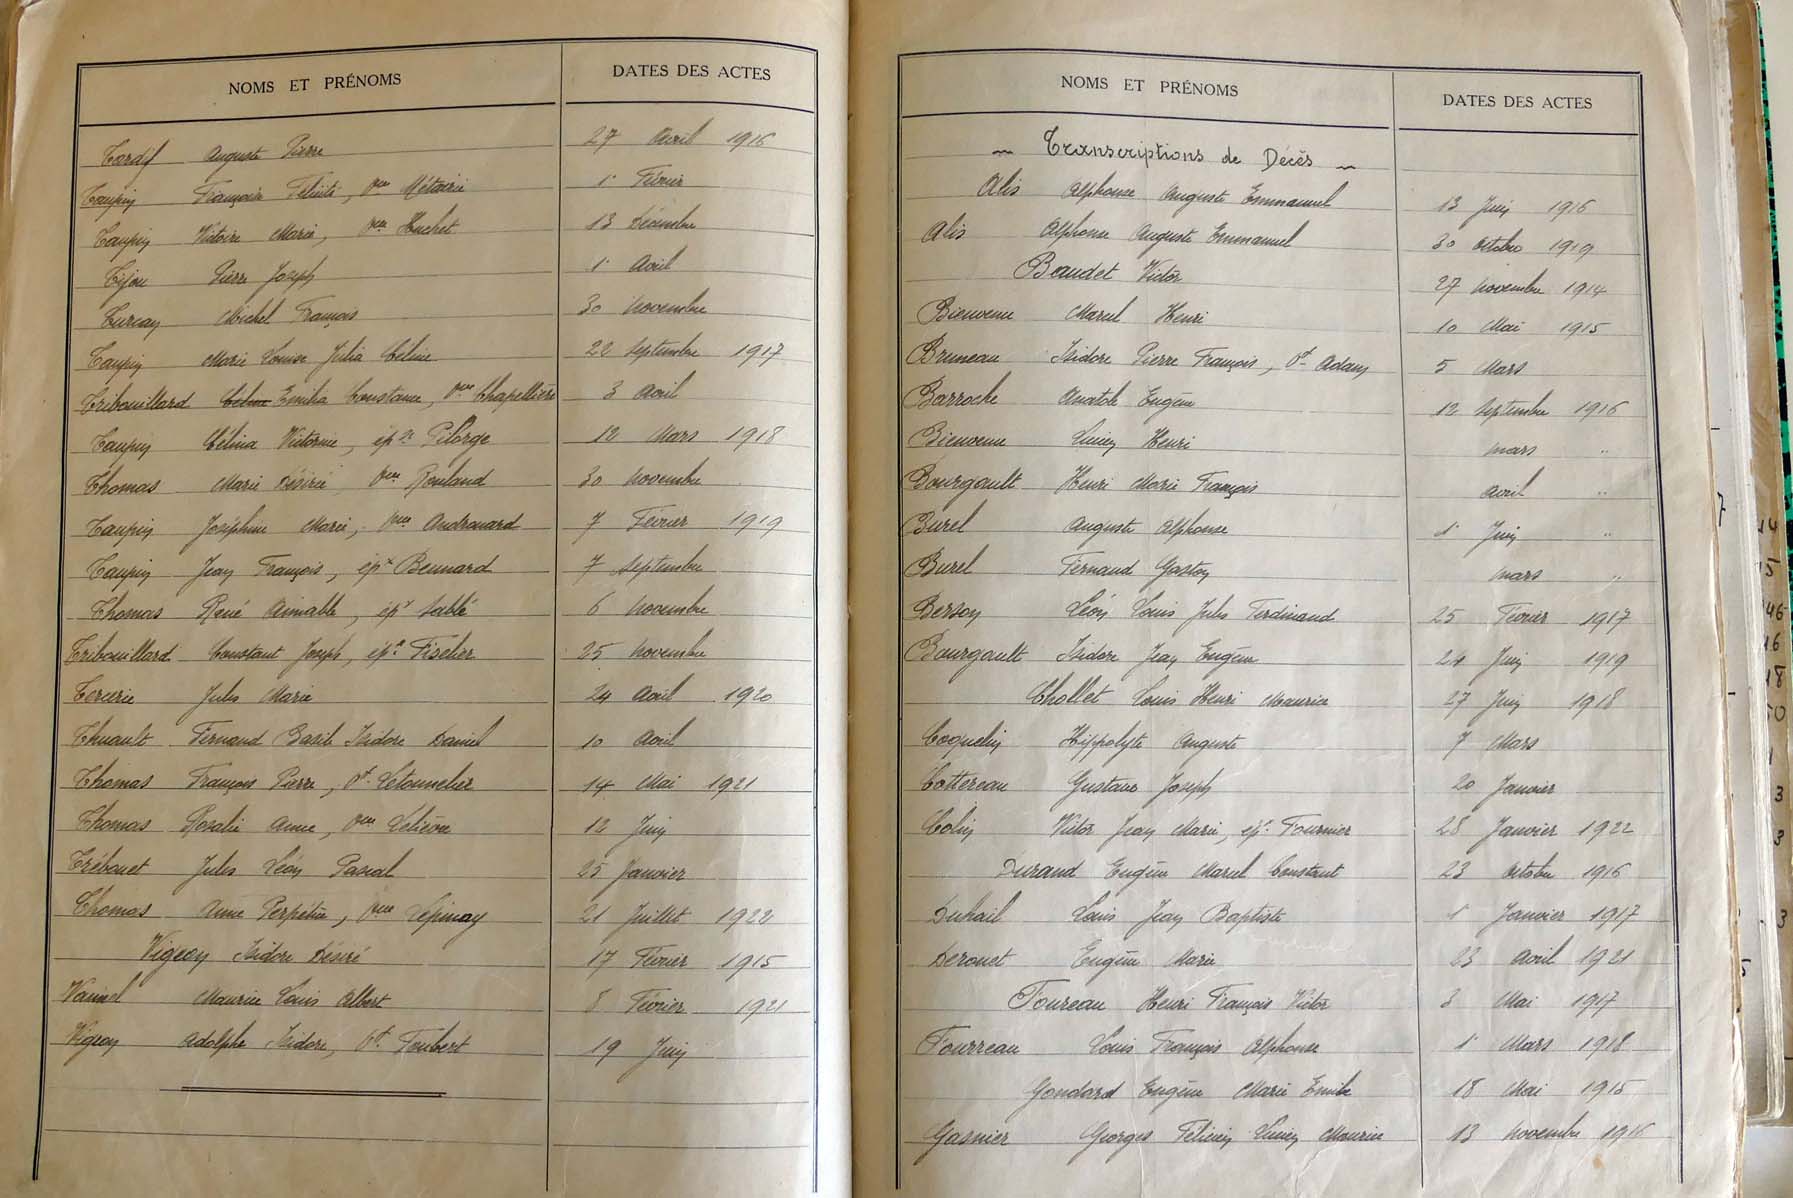 NOMS ET PRÉNOMS DATES DES ACTES
Tardif Auguste Pierre 27 Avril 1916
Taupin Françoise Félicité, Vve Métairie 1er Février
Taupin Victoire Marie, Vve Huchet 13 Décembre
Tijou Pierre Joseph 1er Avril
Turcay Michel François 30 Novembre
Taupin Marie Louise Julia Céline 22 Septembre 1917
Tribouillard Emilia Constance, Vve Chapellière 3 Avril
Taupin Célina Victorine, épse Pilorge 12 Mars 1918
Thomas Marie Désirée Vve Rouland 30 Novembre
Taupin Joséphine Marie, Vve Androuard 7 Février 1919
Taupin Jean François, épx Bennard 7 Septembre
Thomas René Aimable, épx Sablé 6 Novembre
Tribouillard Constant Joseph, épx Fiselier 25 Novembre
Tercerie Jules Marie 24 Avril 1920
Thuault Fernand Basile Isidore Daniel 10 Avril
Thomas François Pierre, Vf Letonnelier 14 Mai 1921
Thomas Rosalie Anne, Vve 12 Juin
Trébouet Jules Léon Pascal 25 Janvier
Thomas Anne Perpétue, Vve Lépinay 21 Juillet 1922
Vigeon Isidore Désiré 17 Février 1915
Vannel Maurice Louis Albert 8 Février 1921
Vigeon Adolphe Isidore, Vf Foubert 19 Juin
NOMS ET PRÉNOMS DATES DES ACTES
~ Transcriptions de Décès ~
Alis Alphonse Auguste Emmanuel 13 Juin 1916
Alis Alphonse Auguste Emmanuel 30 Octobre 1919
Beaudet Victor 27 Novembre 1914
Bienvenu Marcel Henri 10 Mai 1915
Bruneau Isidore Pierre François, Vf Adam 5 Mars
Barroche Anatole Eugène 12 Septembre 1916
Bienvenu Lucien Henri mars "
Bourgault Henri Marie François avril "
Burel Auguste Alphonse 1er Juin "
Burel Fernand Gaston mars "
Berson Léon Louis Jules Ferdinand 25 Février 1917
Bourgault Isidore Jean Eugène 24 Juin 1919
Chollet Louis Henri Maurice 27 Juin 1918
Coquelin Hippolyte Auguste 7 Mars
Cottereau Gustave Joseph 20 Janvier
Colin Victor Jean Marie, épx Fournier 28 Janvier 1922
Durand Eugène Marcel Constant 23 Octobre 1916
Duhail Louis Jean Baptiste 1 Janvier 1917
Derouet Eugène Marie 23 Avril 1921
Foureau Henri François Victor 3 Mai 1917
Fourreau Louis François Alphonse 1er Mars 1918
Gondard Eugène Marie Emile 18 Mai 1915
Gasnier Georges Félicien Lucien Maurice 13 Novembre 1916